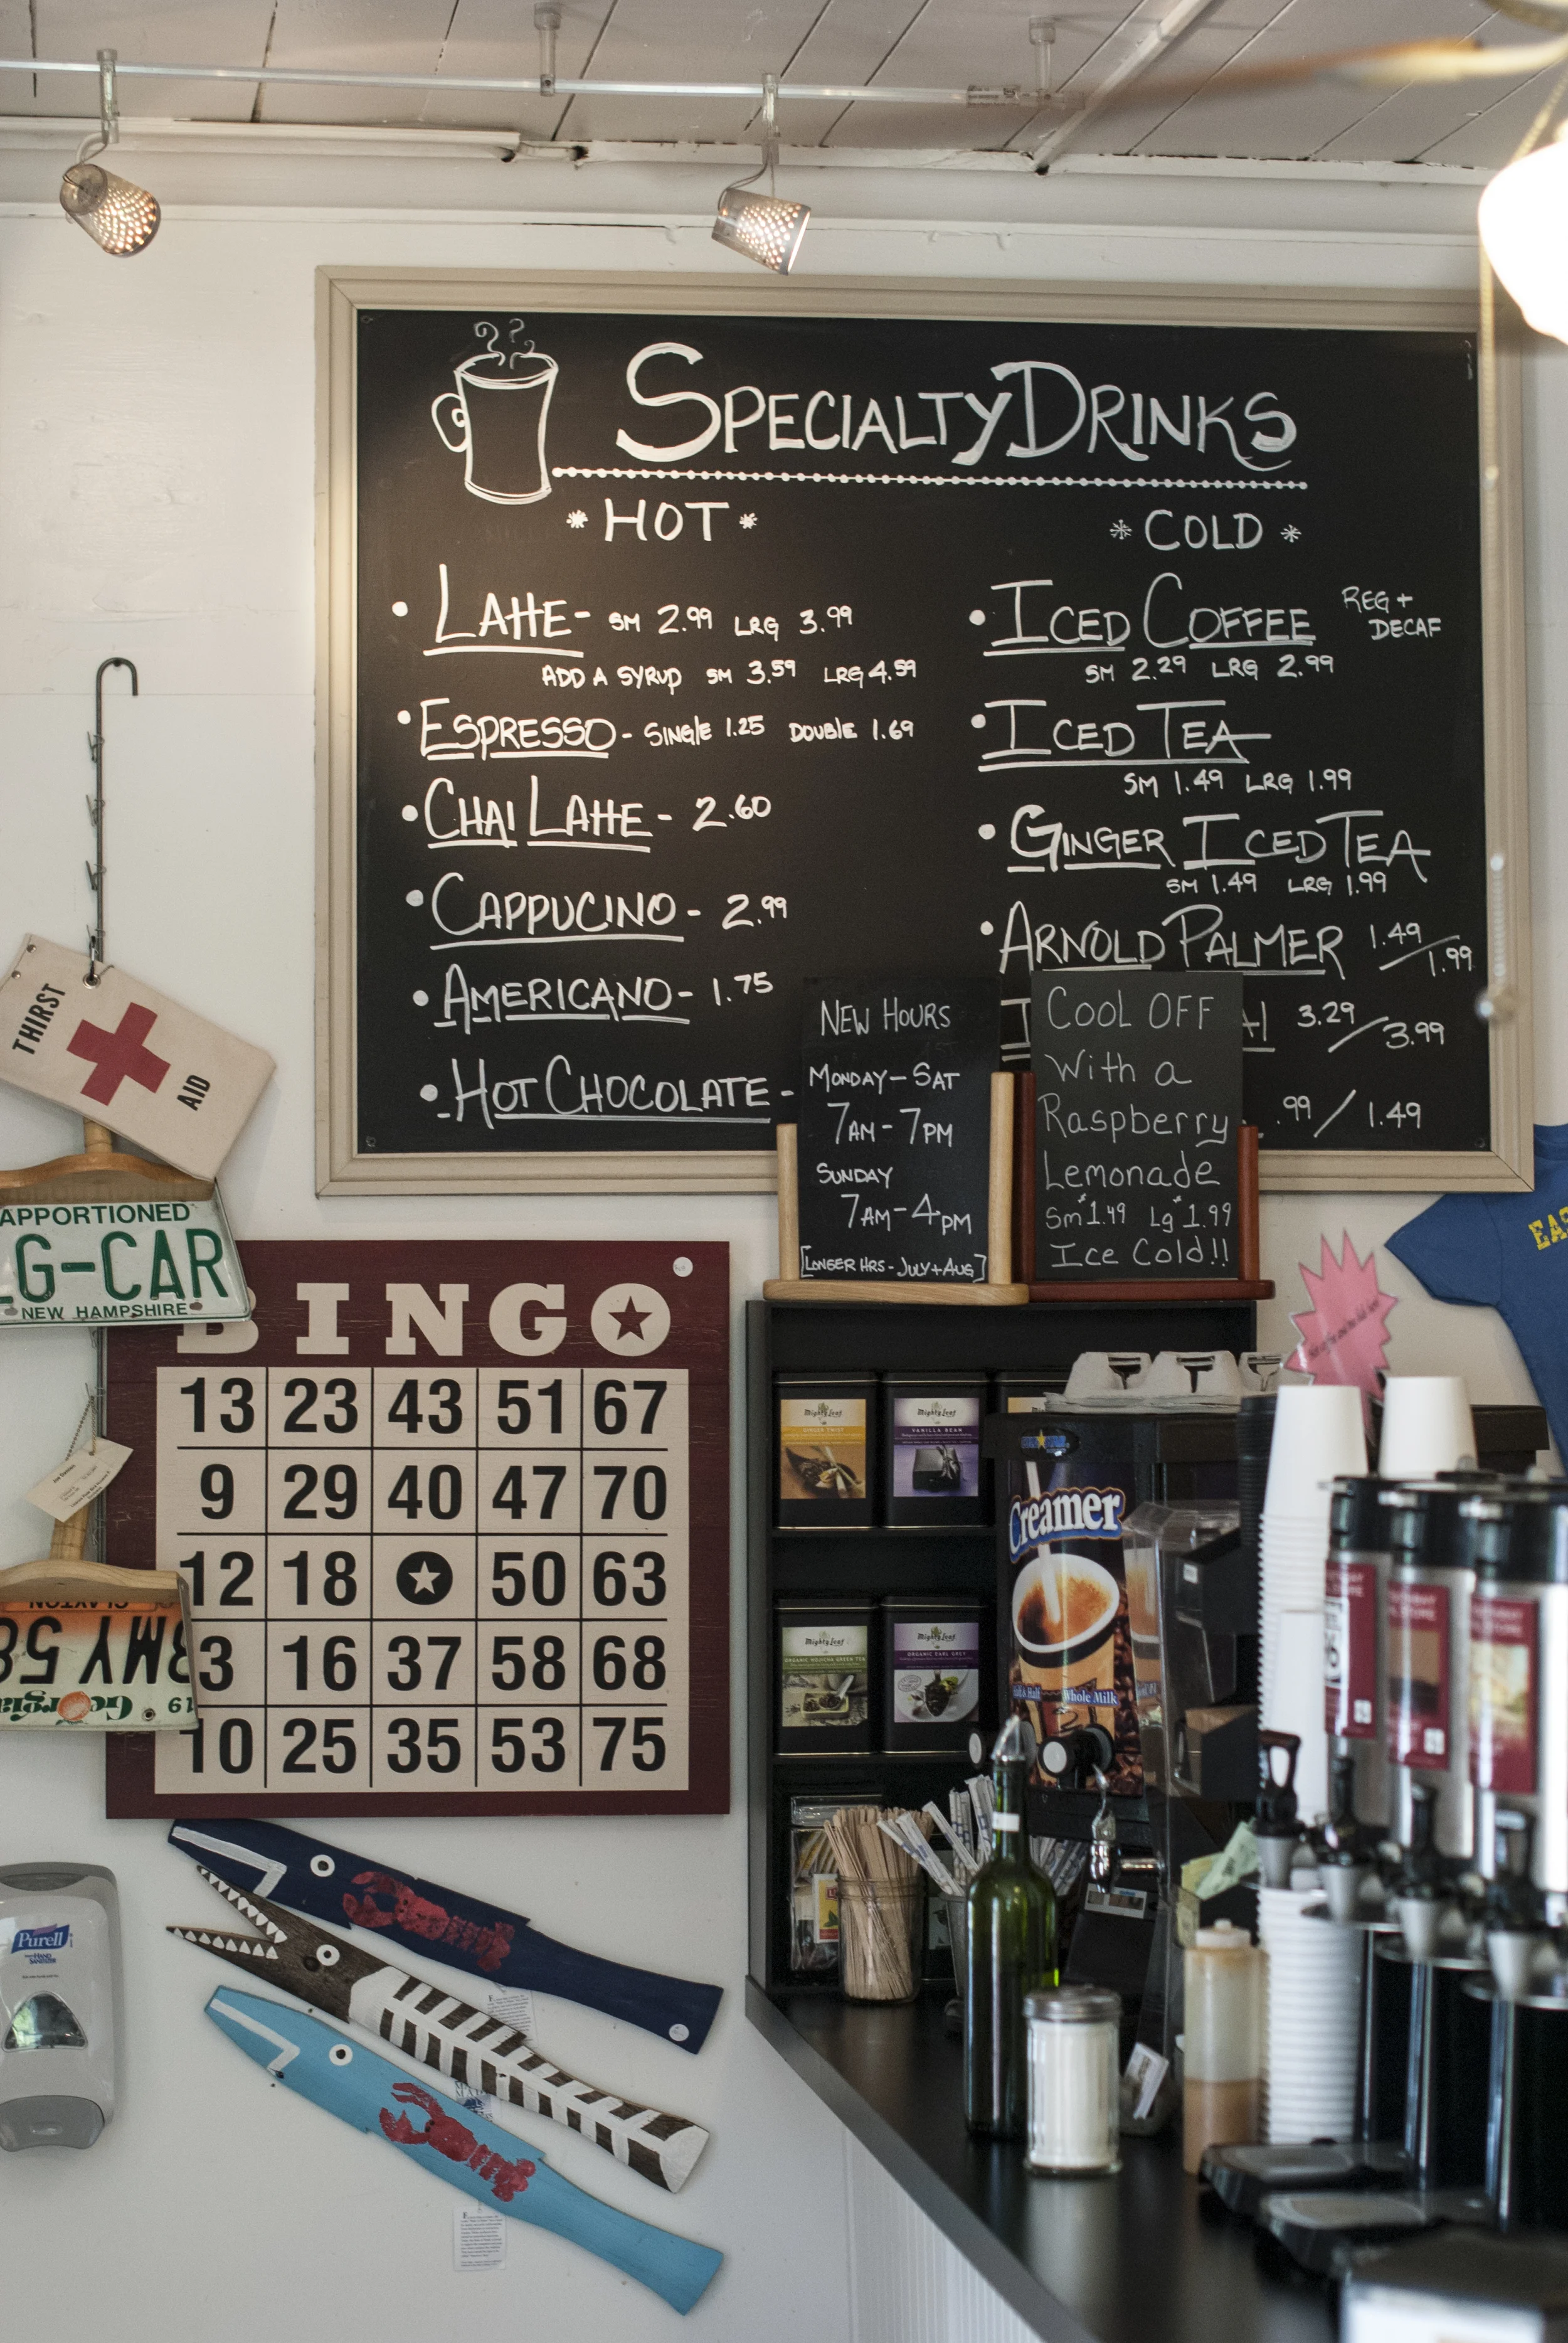 SPECIALTY DRINKS
* HOT *
LATTE - SM 2.99 LRG 3.99
ADD A SYRUP SM 3.59 LRG 4.59
ESPRESSO - SINGLE 1.25 DOUBLE 1.69
CHAI LATTE - 2.60
CAPPUCINO - 2.99
AMERICANO - 1.75
HOT CHOCOLATE -
* COLD *
ICED COFFEE REG +
DECAF
SM 2.29 LRG 2.99
ICED TEA
SM 1.49 LRG 1.99
GINGER ICED TEA
SM 1.49 LRG 1.99
ARNOLD PALMER 1.49/1.99
3.29/3.99
.99/1.49
NEW HOURS
MONDAY - SAT
7AM - 7PM
SUNDAY
7AM - 4PM
[LONGER HRS - JULY + AUG]
COOL OFF
with a
Raspberry
Lemonade
Sm $1.49 Lg $1.99
Ice Cold!!
THIRST
AID
APPORTIONED
LG-CAR
NEW HAMPSHIRE
BINGO
13 23 43 51 67
9 29 40 47 70
12 18 50 63
3 16 37 58 68
10 25 35 53 75
CLAYTON
BMY 58
Georgia
19
Mighty Leaf
GINGER TWIST
Mighty Leaf
VANILLA BEAN
Mighty Leaf
ORGANIC HOJICHA GREEN TEA
Mighty Leaf
ORGANIC EARL GREY
Creamer
Whole Milk
Purell
HAND
SANITIZER
EAS